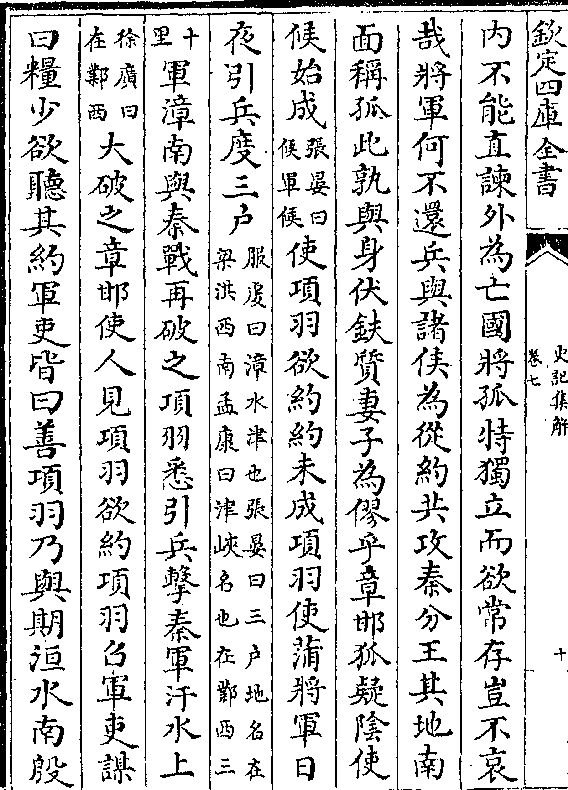 欽定四庫全書
史記集解
卷七
十
内不能直諫外為亡國將孤特獨立而欲常存豈不哀
哉將軍何不還兵與諸侯為從約共攻秦分王其地南
面稱孤此孰與身伏鈇質妻子為僇乎章邯狐疑陰使
候始成張晏曰候軍候使項羽欲約約未成項羽使蒲將軍日
夜引兵度三户服虔曰漳水津也張晏曰三户地名在梁淇西南孟康曰津峽名也在鄴西三
十里軍漳南與秦戰再破之項羽悉引兵擊秦軍汙水上
徐廣曰在鄴西大破之章邯使人見項羽欲約項羽召軍吏謀
曰糧少欲聽其約軍吏皆曰善項羽乃與期洹水南殷